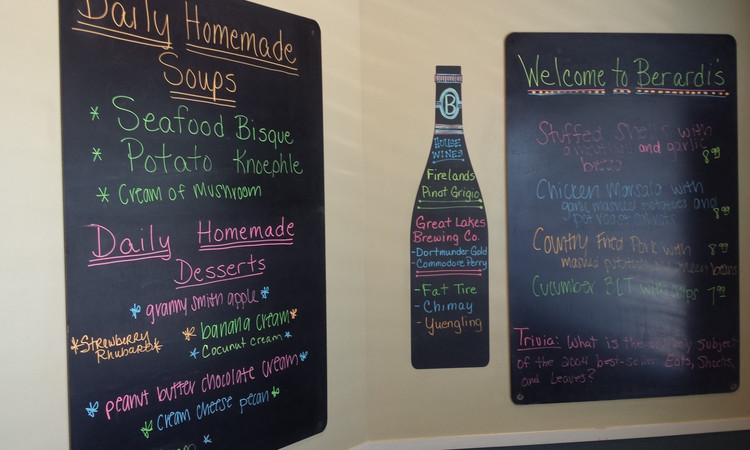 Daily Homemade
Soups
* Seafood Bisque
* Potato Knoephle
* Cream of Mushroom
Daily Homemade
Desserts
* granny smith apple *
* Strawberry Rhubarb *
* banana cream *
* Cocunut cream *
* peanut butter chocolate cream *
* Cream cheese pecan *
B
House
Wines
Firelands
Pinot Grigio
Great Lakes
Brewing Co.
- Dortmunder Gold
- Commodore Perry
- Fat Tire
- Chimay
- Yuengling
Welcome to Berardi's
Stuffed Shells with
and garlic
bread 8.99
Chicken Marsala with
garlic mashed potatoes and
pot roast carrots 8.99
Country Fried Pork with 8.99
mashed potatoes green beans
Cucumber BLT with chips 7.99
Trivia: What is the subject
of the 2004 best-seller Eats, Shoots,
and Leaves?